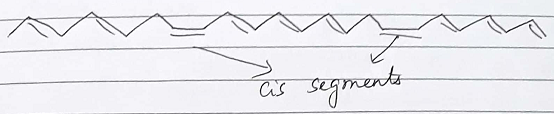 cis segments